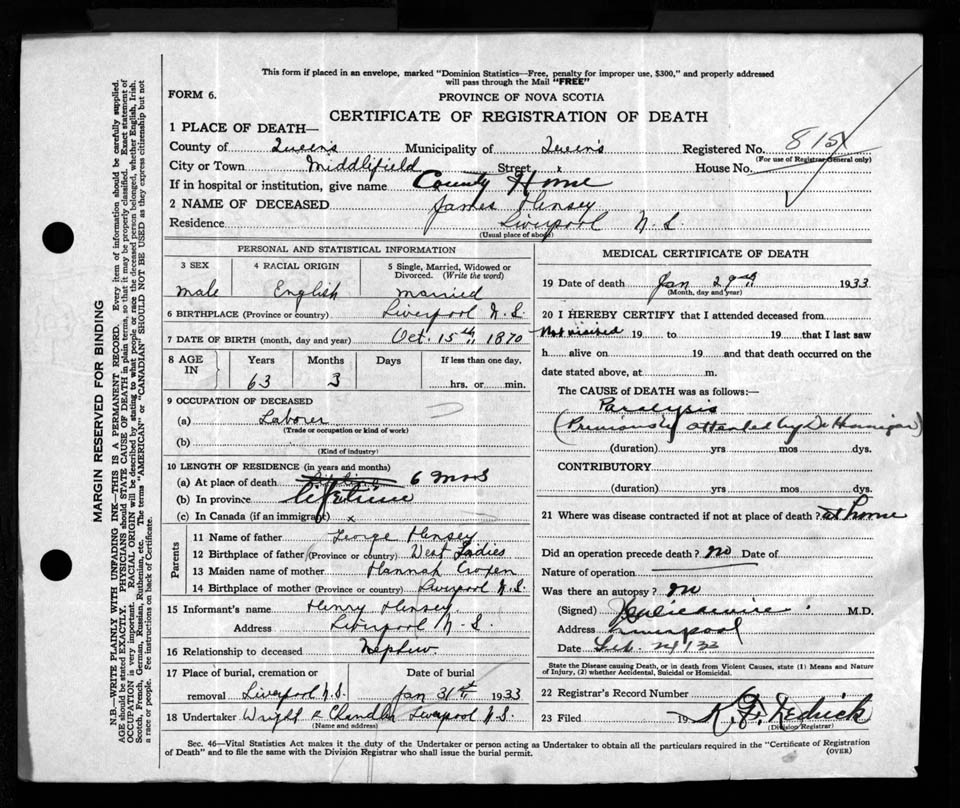 This form if placed in an envelope, marked "Dominion Statistics—Free, penalty for improper use, $300," and properly addressed
will pass through the Mail "FREE"
FORM 6.
PROVINCE OF NOVA SCOTIA
CERTIFICATE OF REGISTRATION OF DEATH
1 PLACE OF DEATH—
County of Queens Municipality of Queen's Registered No. 815
(For use of Registrar General only)
City or Town Middlefield Street x House No.
If in hospital or institution, give name County Home
2 NAME OF DECEASED James Hensey
Residence Liverpool N.S.
(Usual place of abode)
PERSONAL AND STATISTICAL INFORMATION
3 SEX 4 RACIAL ORIGIN 5 Single, Married, Widowed or
Divorced. (Write the word)
male English married
6 BIRTHPLACE (Province or country) Liverpool N.S.
7 DATE OF BIRTH (month, day and year) Oct. 15th 1870
8 AGE IN Years Months Days If less than one day,
63 3 hrs. or min.
9 OCCUPATION OF DECEASED
(a) Laborer
(Trade or occupation or kind of work)
(b)
(Kind of industry)
10 LENGTH OF RESIDENCE (in years and months)
(a) At place of death 6 mos
(b) In province lifetime
(c) In Canada (if an immigrant) x
Parents
11 Name of father George Hensey
12 Birthplace of father (Province or country) West Indies
13 Maiden name of mother Hannah
14 Birthplace of mother (Province or country) Liverpool N.S.
15 Informant's name Henry Hensey
Address Liverpool N.S.
16 Relationship to deceased Nephew
17 Place of burial, cremation or Date of burial
removal Liverpool N.S. Jan 31st 1933
18 Undertaker Wright & Chandler Liverpool N.S.
(Name and address)
MEDICAL CERTIFICATE OF DEATH
19 Date of death Jan 29th 1933
(Month, day and year)
20 I HEREBY CERTIFY that I attended deceased from
Not viewed 19 to 19 that I last saw
h alive on 19 and that death occurred on the
date stated above, at m.
The CAUSE of DEATH was as follows:—
Paralysis
(Previously attended by Dr Hennigar)
(duration) yrs mos dys.
CONTRIBUTORY
(duration) yrs mos dys.
21 Where was disease contracted if not at place of death? at home
Did an operation precede death? no Date of
Nature of operation
Was there an autopsy? no
(Signed) M.D.
Address Liverpool
Date Feb.
State the Disease causing Death, or in death from Violent Causes, state (1) Means and Nature
of Injury, (2) whether Accidental, Suicidal or Homicidal.
22 Registrar's Record Number
23 Filed 19
(Division Registrar)
Sec. 46—Vital Statistics Act makes it the duty of the Undertaker or person acting as Undertaker to obtain all the particulars required in the "Certificate of Registration
of Death" and to file the same with the Division Registrar who shall issue the burial permit. (OVER)
MARGIN RESERVED FOR BINDING
N.B.—WRITE PLAINLY WITH UNFADING INK—THIS IS A PERMANENT RECORD. Every item of information should be carefully supplied.
AGE should be stated EXACTLY. PHYSICIANS should STATE CAUSE OF DEATH in plain terms, so that it may be properly classified. Exact statement of
OCCUPATION is very important. RACIAL ORIGIN will be described by stating to what people or race the deceased person belonged, whether English, Irish,
Scotch, French, German, Russian, Ruthenian, etc. The terms "AMERICAN" or "CANADIAN" SHOULD NOT BE USED as they express citizenship but not
a race or people. See instructions on back of Certificate.